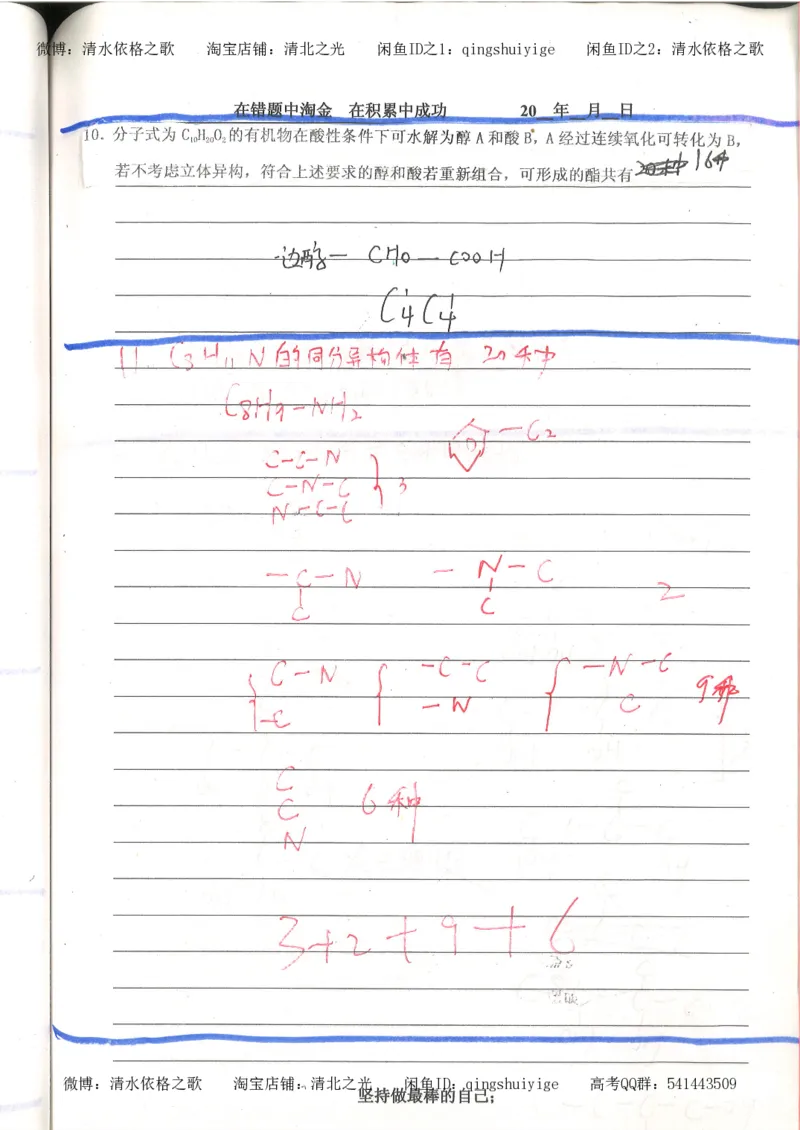 微博：清水依格之歌 淘宝店铺：清北之光 闲鱼ID之1：qingshuiyige 闲鱼ID之2：清水依格之歌
在错题中淘金 在积累中成功 20 年 月 日
10. 分子式为 C₁₀H₂₀O₂的有机物在酸性条件下可水解为醇 A 和酸 B，A 经过连续氧化可转化为 B，
若不考虑立体异构，符合上述要求的醇和酸若重新组合，可形成的酯共有 16种
CHO — COOH
C4 C4
11. C3H11N 的同分异构体有 20种
C8H9-NH2
-C2
C-C-N
C-N-C } 3
N-C-C
-C-N -N-C 2
C C
C-N -C-C -N-C 9种
-C -N C
C
C 6种
N
3+2+9+6
微博：清水依格之歌 淘宝店铺：清北之光 闲鱼ID：qingshuiyige 高考QQ群：541443509
坚持做最棒的自己；